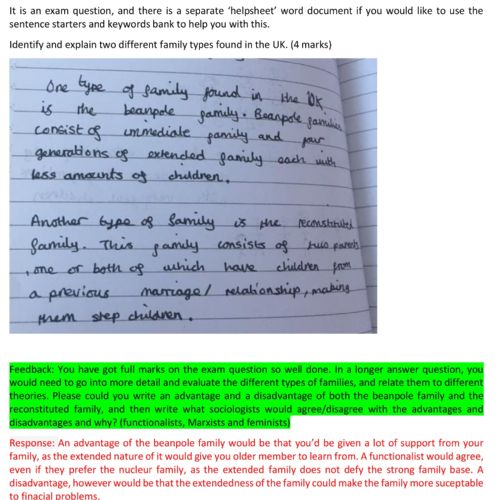 It is an exam question, and there is a separate 'helpsheet' word document if you would like to use the
sentence starters and keywords bank to help you with this.
Identify and explain two different family types found in the UK. (4 marks)
One type of family found in the UK
is the beanpole family. Beanpole families
consist of immediate family and four
generations of extended family each with
less amounts of children.
Another type of family is the reconstituted
family. This family consists of two parents
, one or both of which have children from
a previous marriage / relationship, making
them step children.
Feedback: You have got full marks on the exam question so well done. In a longer answer question, you
would need to go into more detail and evaluate the different types of families, and relate them to different
theories. Please could you write an advantage and a disadvantage of both the beanpole family and the
reconstituted family, and then write what sociologists would agree/disagree with the advantages and
disadvantages and why? (functionalists, Marxists and feminists)
Response: An advantage of the beanpole family would be that you'd be given a lot of support from your
family, as the extended nature of it would give you older member to learn from. A functionalist would agree,
even if they prefer the nucleur family, as the extended family does not defy the strong family base. A
disadvantage, however would be that the extendedness of the family could make the family more suceptable
to finacial problems.